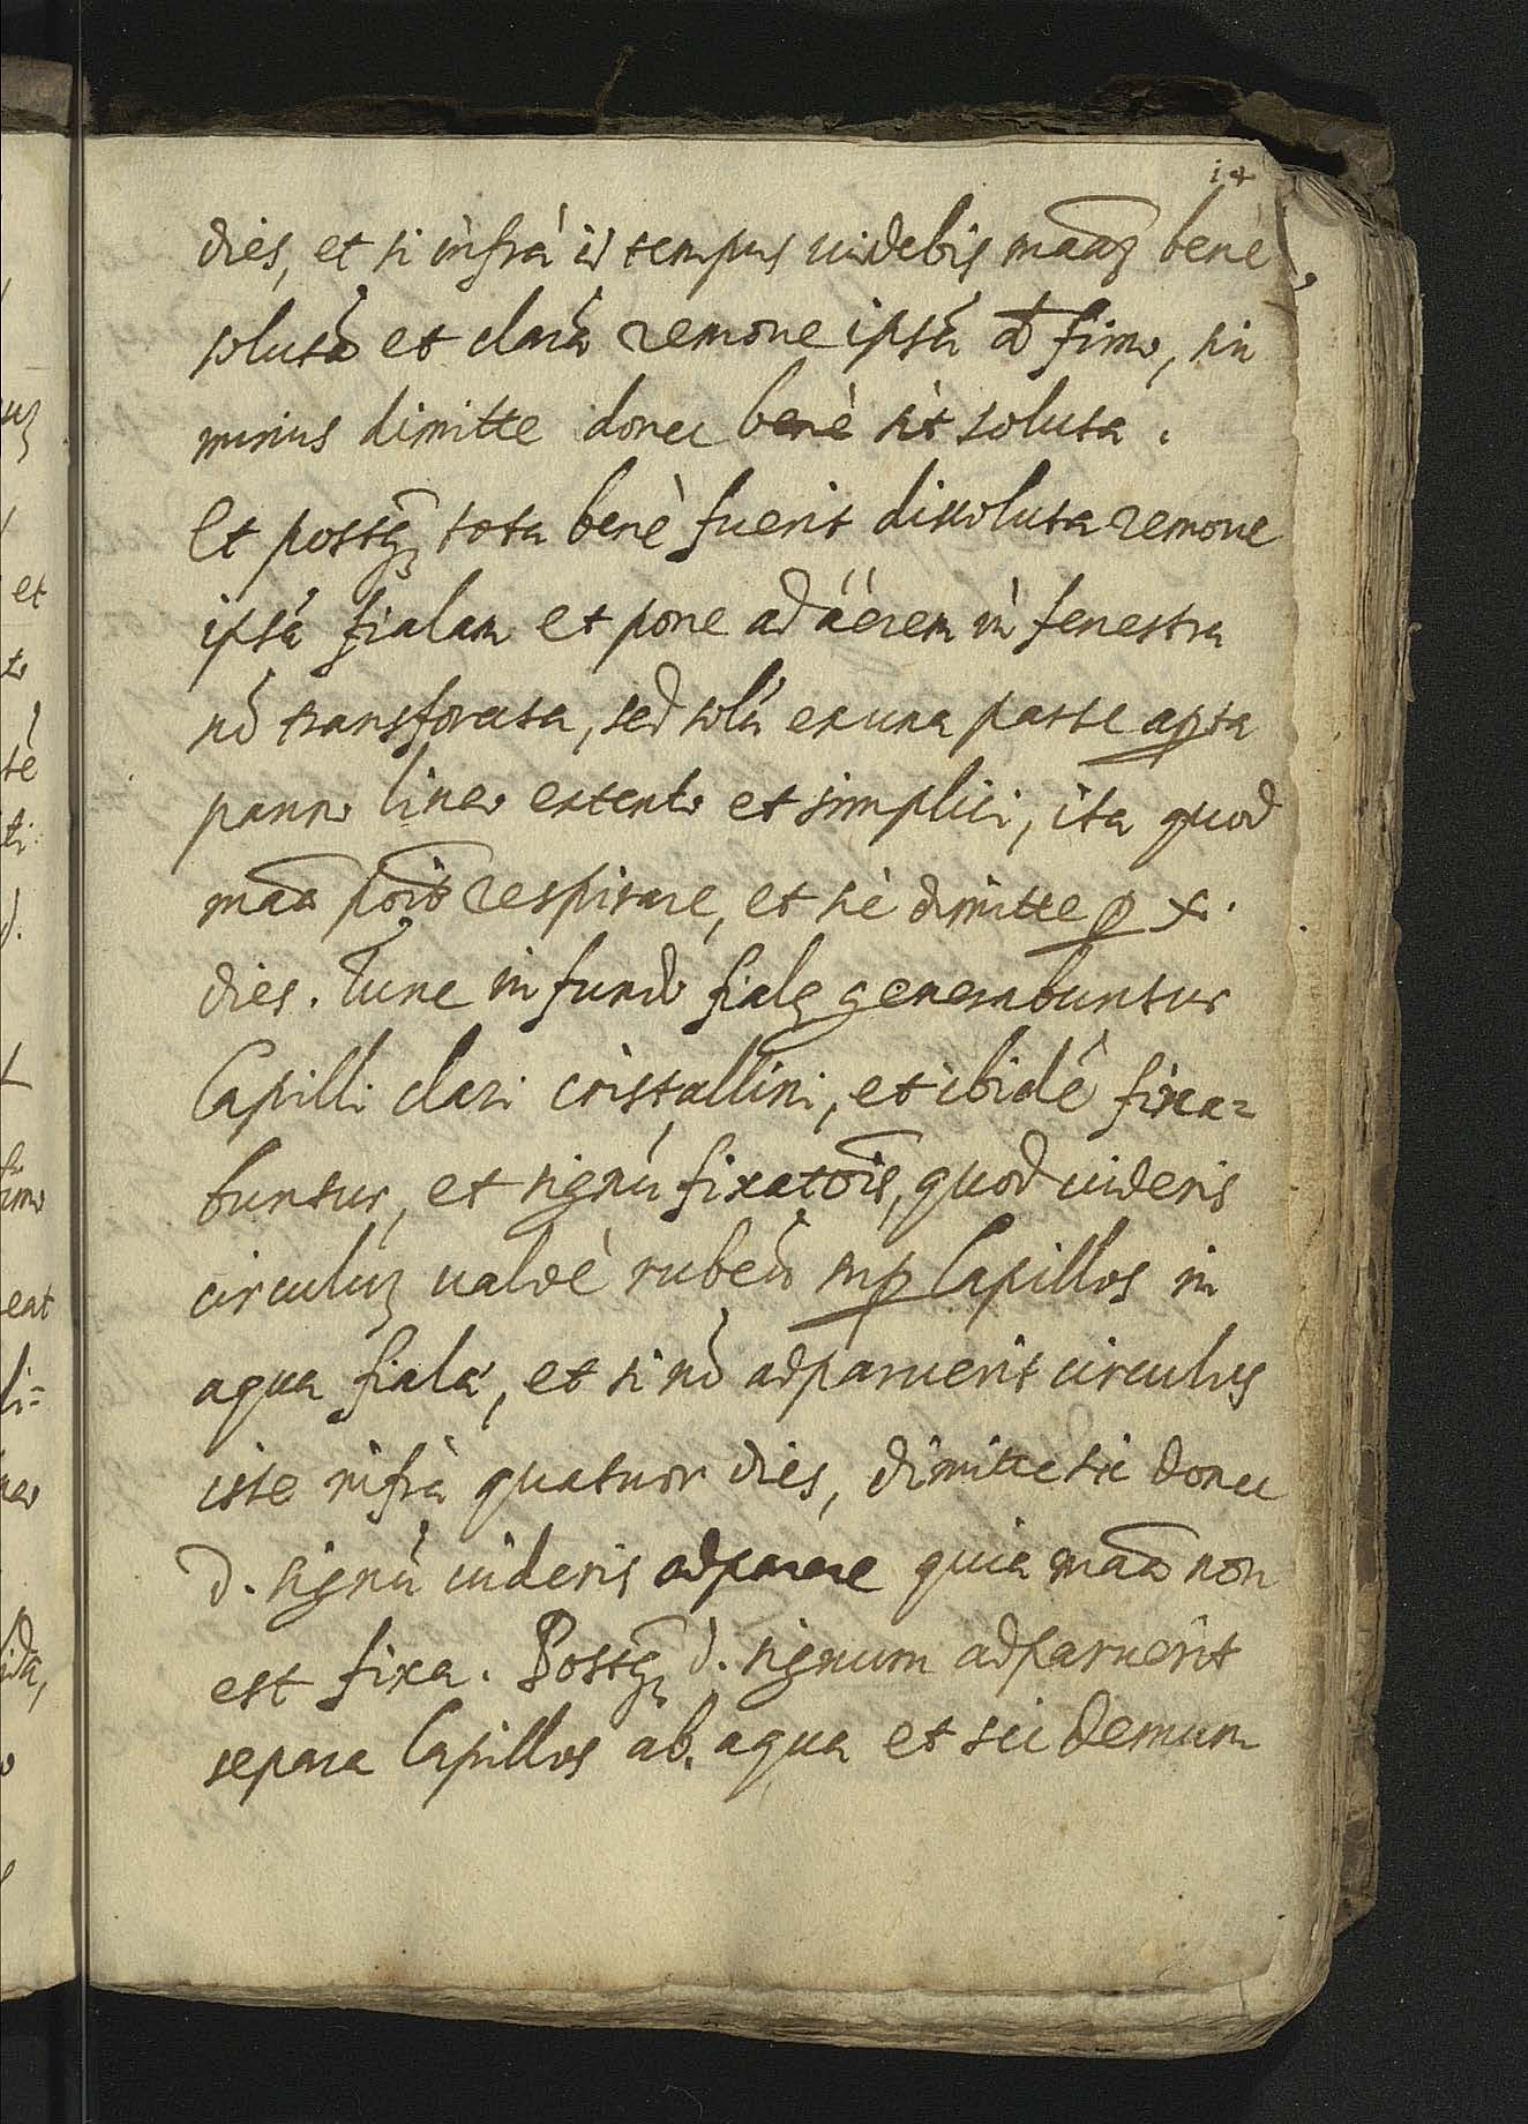 14
dies, et si infrà id tempus uidebis maãꝫ benè
solutã et clarã remoue ipsã â fimo, sin
minus dimitte donec benè sit soluta.
Et postq̃ tota benè fuerit dissoluta remoue
ipsã fialam et pone ad áérem in fenestra
nõ transforata, sed solũ ex una parte aꝑta
panno lineo extento et simplici, ita quod
maã põit respirare, et sic dimitte ꝑ x.
dies. Tunc in fundo fialę generabuntur
Capilli clari cristallini, et ibidẽ fixa=
buntur, et signũ fixatõis, quod uideris
circulũꝫ ualdè rubeũ suꝑ Capillos in
aqua fialæ, et si nõ adparuerit circulus
iste infrà quatuor dies, dimitte sic donec
d. signũ uideris adparere quia maã non
est fixa. Postq̃ d. signum adparuerit
separa Capillos ab aqua et sic demum